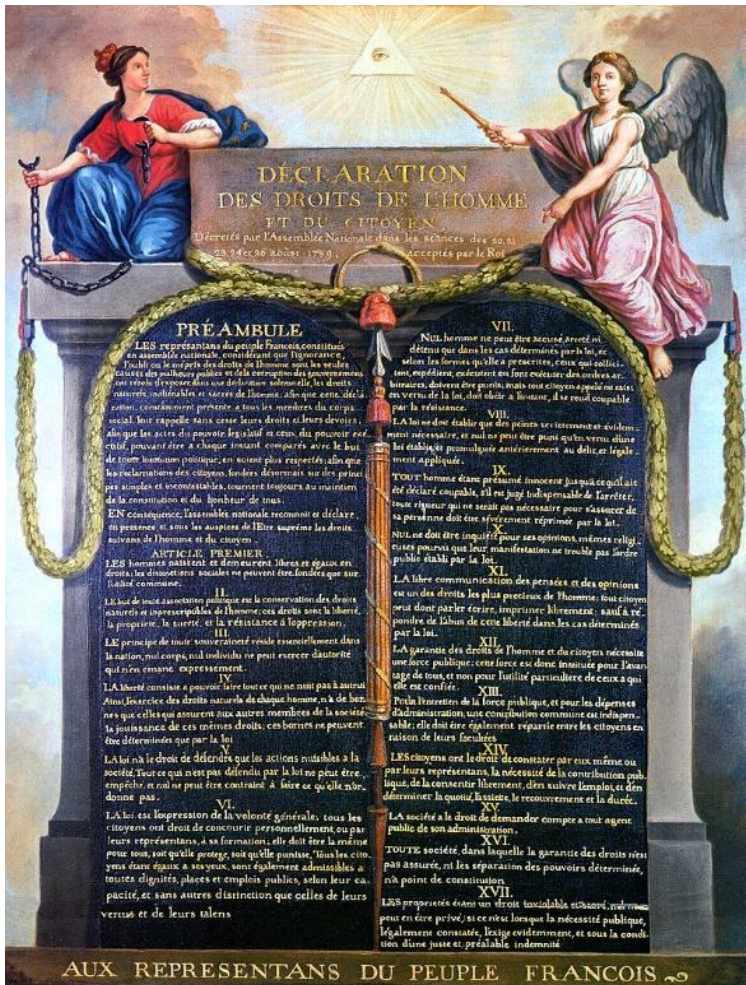 DÉCLARATION
DES DROITS DE L'HOMME
ET DU CITOYEN
Décretés par l'Assemblée Nationale dans les séances des 20, 21
23, 24 et 26 août 1789, acceptés par le Roi
PRÉAMBULE
LES représantans du peuple Francois, constitués
en assemblée nationale, considérant que l'ignorance,
l'oubli ou le mépris des droits de l'homme sont les seules
causes des malheurs publics et de la corruption des gouvernements
ont résolu d'exposer dans une déclaration solemnelle, les droits
naturels, inaliénables et sacrés de l'homme; afin que cette décla
ration, constamment présente a tous les membres du corps
social leur rappelle sans cesse leurs droits et leurs devoirs,
afin que les actes du pouvoir legislatif et ceux du pouvoir exé
cutif, pouvant être a chaque instant comparés avec le but
de toute institution politique, en soient plus respectés; afin que
les reclamations des citoyens, fondées désormais sur des princi
pes simples et incontestables, tournent toujours au maintien
de la constitution et du bonheur de tous.
EN conséquence, l'assemblée nationale reconnoit et déclare,
en presence et sous les auspices de l'Etre suprême les droits
suivans de l'homme et du citoyen.
ARTICLE PREMIER.
LES hommes naissent et demeurent libres et égaux en
droits; les distinctions sociales ne peuvent être fondées que sur
l'utilité commune.
II.
LE but de toute association politique est la conservation des droits
naturels et imprescriptibles de l'homme; ces droits sont la liberté,
la proprieté, la sureté, et la résistance à l'oppression.
III.
LE principe de toute souveraineté réside essentiellement dans
la nation, nul corps, nul individu ne peut exercer d'autorité
qui n'en emane expressement.
IV.
LA liberté consiste a pouvoir faire tout ce qui ne nuit pas à autrui
Ainsi, l'exercice des droits naturels de chaque homme, n'a de bor
nes que celles qui assurent aux autres membres de la société
la jouissance de ces mêmes droits; ces bornes ne peuvent
être déterminées que par la loi
V.
LA loi n'a le droit de défendre que les actions nuisibles a la
société. Tout ce qui n'est pas défendu par la loi ne peut être
empêché, et nul ne peut être contraint à faire ce qu'elle n'or-
donne pas.
VI.
LA loi est l'expression de la volonté générale; tous les
citoyens ont droit de concourir personnellement, ou par
leurs représentans, à sa formation; elle doit être la même
pour tous, soit qu'elle protege, soit qu'elle punisse. Tous les cito
yens étant égaux à ses yeux, sont également admissibles à
toutes dignités, places et emplois publics, selon leur ca
pacité, et sans autres distinction que celles de leurs
vertus et de leurs talens
VII.
NUL homme ne peut être accusé, arreté ni
détenu que dans les cas déterminés par la loi, et
selon les formes qu'elle a prescrites, ceux qui sollici-
tent, expédient, exécutent ou font exécuter des ordres ar-
bitraires, doivent être punis; mais tout citoyen appelé ou saisi
en vertu de la loi, doit obéir a l'instant, il se rend coupable
par la résistance.
VIII.
LA loi ne doit établir que des peines strictement et évidem-
ment nécessaire, et nul ne peut être puni qu'en vertu d'une
loi établie et promulguée antérieurement au délit, et légale
ment appliquée.
IX.
TOUT homme étant présumé innocent jusqu'à ce qu'il ait
été déclaré coupable, s'il est jugé indispensable de l'arrêter,
toute rigueur qui ne serait pas nécessaire pour s'assurer de
sa personne doit être sévèrement réprimée par la loi.
X.
NUL ne doit être inquiété pour ses opinions, mêmes religi-
euses pourvu que leur manifestation ne trouble pas l'ordre
public établi par la loi.
XI.
LA libre communication des pensées et des opinions
est un des droits les plus precieux de l'homme; tout citoyen
peut dont parler écrire, imprimer librement; sauf à ré-
pondre de l'abus de cette liberté dans les cas déterminés
par la loi.
XII.
LA garantie des droits de l'homme et du citoyen nécessite
une force publique; cette force est donc instituée pour l'avan-
tage de tous, et non pour l'utilité particuliere de ceux a qui
elle est confiée.
XIII.
Pour l'entretien de la force publique, et pour les dépenses
d'administration, une contribution commune est indispen-
sable; elle doit être également répartie entre les citoyens en
raison de leurs facultées
XIV.
LES citoyens ont le droit de constater par eux même ou
par leurs représentans, la nécessité de la contribution pub-
lique, de la consentir librement, d'en suivre l'emploi, et d'en
déterminer la quotité, l'assiette, le recouvrement et la durée.
XV.
LA société a le droit de demander compte a tout agent
public de son administration.
XVI.
TOUTE société, dans laquelle la garantie des droits n'est
pas assurée, ni les séparation des pouvoirs déterminée,
n'a point de constitution
XVII.
LES proprietés étant un droit inviolable et sacré, nul ne
peut en être privé, si ce n'est lorsque la nécessité publique,
légalement constatée, l'exige evidemment, et sous la condi-
tion d'une juste et préalable indemnité
AUX REPRESENTANS DU PEUPLE FRANCOIS